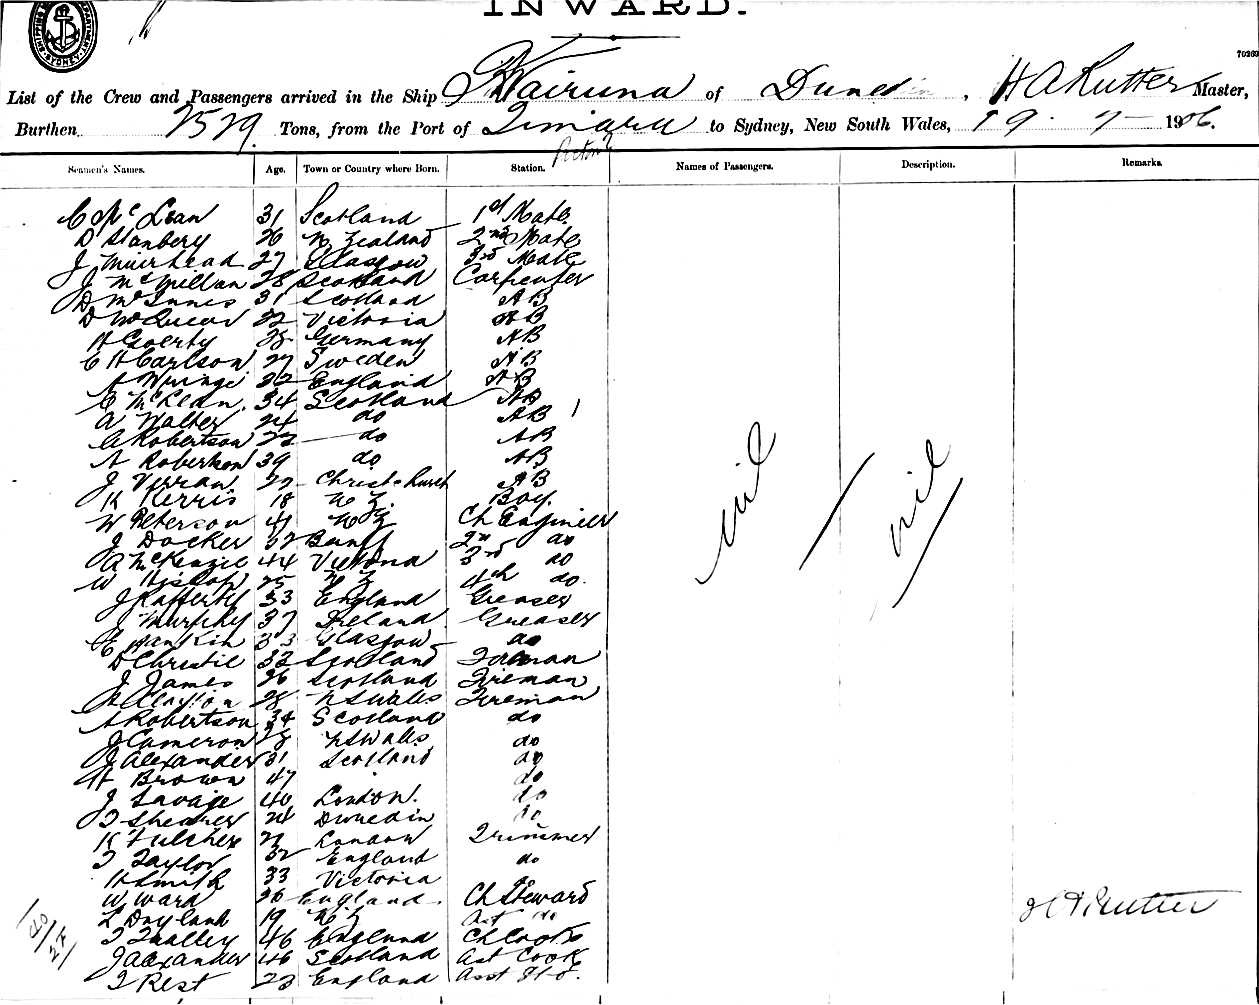 INWARD.
SHIPPING DEPARTMENT SYDNEY
70269
List of the Crew and Passengers arrived in the Ship Wairuna of Dunedin, H A Rutter Master,
Burthen 2529 Tons, from the Port of Timaru to Sydney, New South Wales, 19 - 7 - 1906.
Picton
Seamen's Names. Age. Town or Country where Born. Station. Names of Passengers. Description. Remarks.
C McLean 31 Scotland 1st Mate
D Stanbery 26 N Zealand 2nd Mate
J Muirhead 27 Glasgow 3rd Mate
J McMillan 28 Scotland Carpenter
D McInnes 31 Scotland AB
D McLucas 22 Victoria AB
H Goerty 28 Germany AB
C H Carlson 27 Sweden AB
A Wringe 32 England AB
C McLean 34 Scotland AB
A Walter 24 do AB
G Robertson 22 do AB
A Robertson 39 do AB
J Verran 22 Christchurch AB
K Kerris 18 N Z Boy
W Peterson 41 N Z Ch Engineer
J Docker 32 Banff 2nd do
A McKenzie 44 Victoria 3rd do
W Hislop 25 N Z 4th do
J Rafferty 33 England Greaser
J Murphy 37 Ireland Greaser
E Hankin 33 Glasgow do
D Christie 32 Scotland Fireman
J James 26 Scotland Fireman
Clayton 28 NSWales Fireman
A Robertson 34 Scotland do
J Cameron 28 NSWales do
J Alexander 31 Scotland do
H Brown 47 do
J Savage 40 London. do
T Shearer 24 Dunedin do
K Fulcher 22 London Trimmer
T Taylor 32 England do
H Smith 33 Victoria
W Ward 26 England. Ch Steward
L Dayland 19 N Z Ast do
T Tralley 46 England Ch Cook
J Alexander 46 Scotland Ast Cook
T Rest 23 England Asst
nil nil
H A Rutter
40/2F